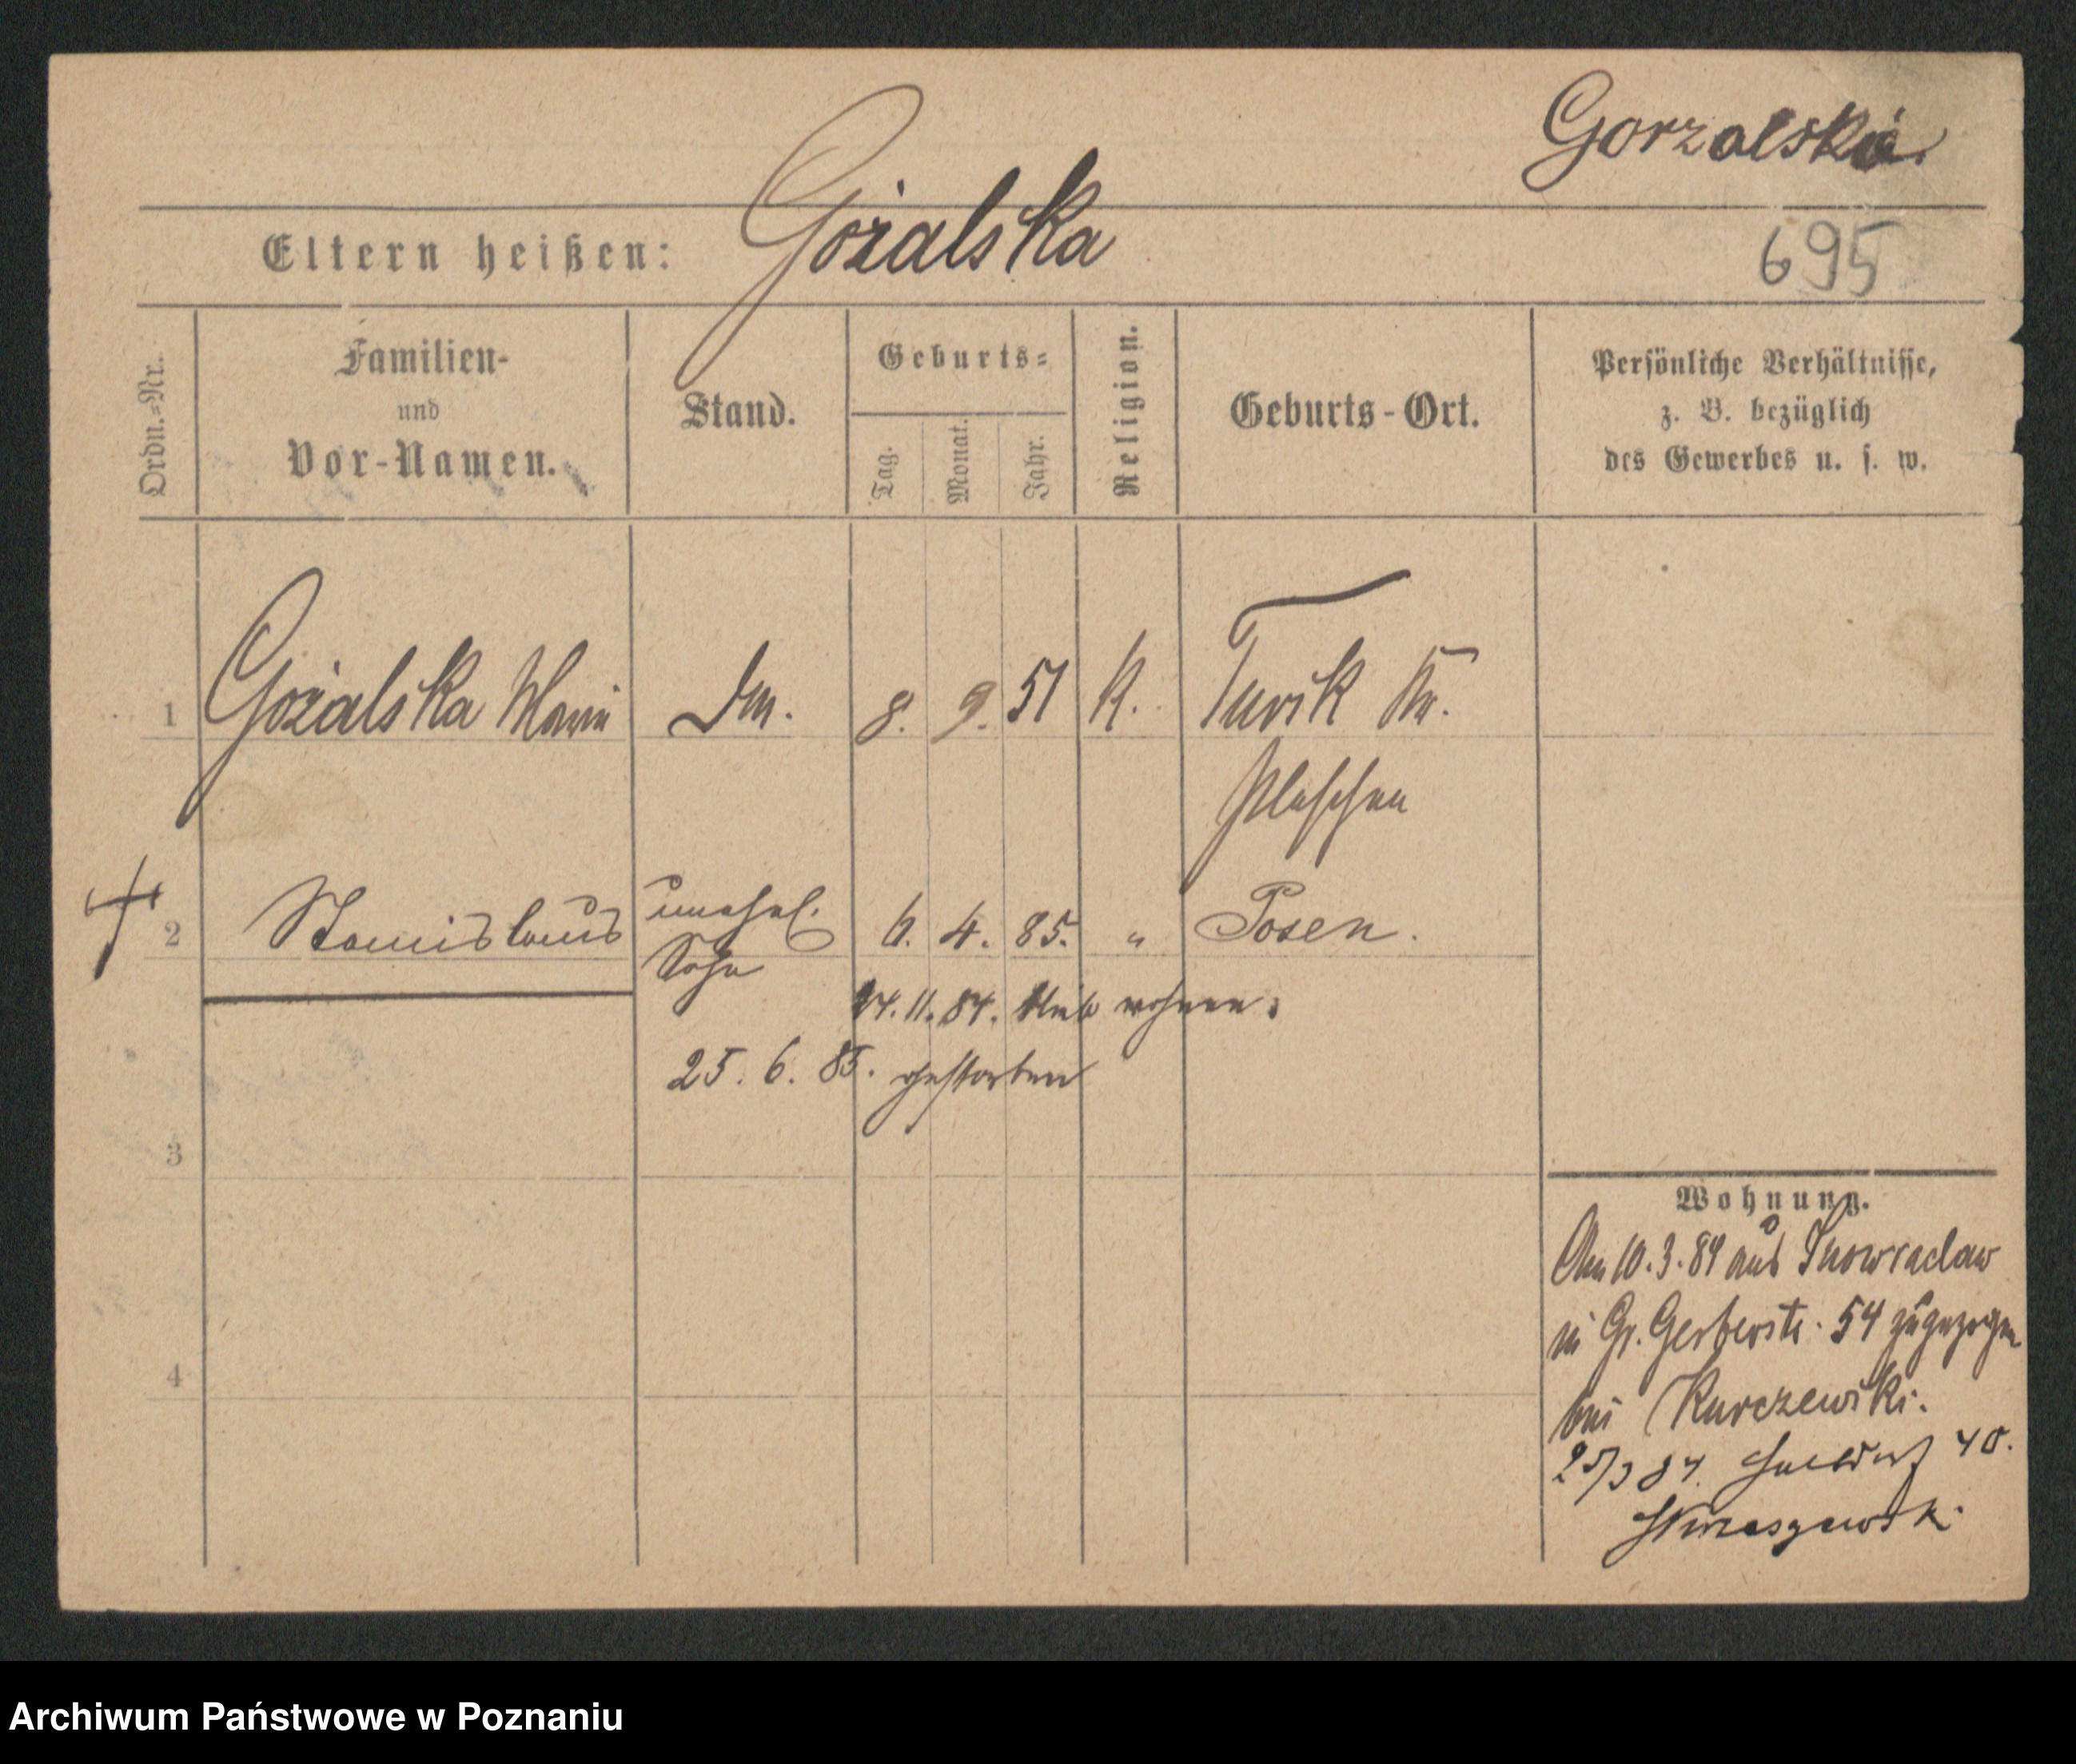 Gorzalska.
Eltern heißen: Gożalska
695
Ordn.-Nr.
Familien-
und
Vor-Namen.
Stand.
Geburts-
Tag.
Monat.
Jahr.
Religion.
Geburts-Ort.
Persönliche Verhältnisse,
z. B. bezüglich
des Gewerbes u. s. w.
1 Gożalska Marie 8. 9. 51 K. Turik Kr.
Pleschen
2 Stanislaus unehel. 6. 4. 85. " Posen.
Sohn
24. 11. 84. wohnen.
25. 6. 85. gestorben
3
4
Wohnung.
Am 10. 3. 84 aus Inowraclaw
in Gr. Gerberstr. 54 zugezogen
bei Kurczewski.
25/3 84. 40.
Archiwum Państwowe w Poznaniu